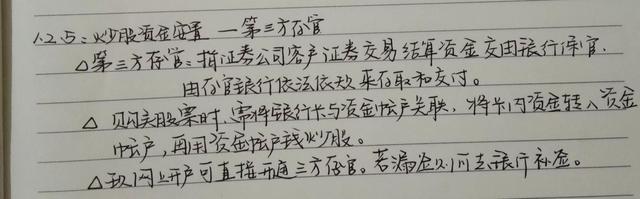 1.2.5：炒股资金安置 — 第三方存管
△第三方存管：指证券公司客户证券交易结算资金交由银行保管.
由存管银行依法依规来存取和交付。
△ 购买股票时,需将银行卡与资金帐户关联,将卡内资金转入资金
帐户,再用资金帐户钱炒股。
△现网上开户可直接开通三方存管。若漏签则可去银行补签。